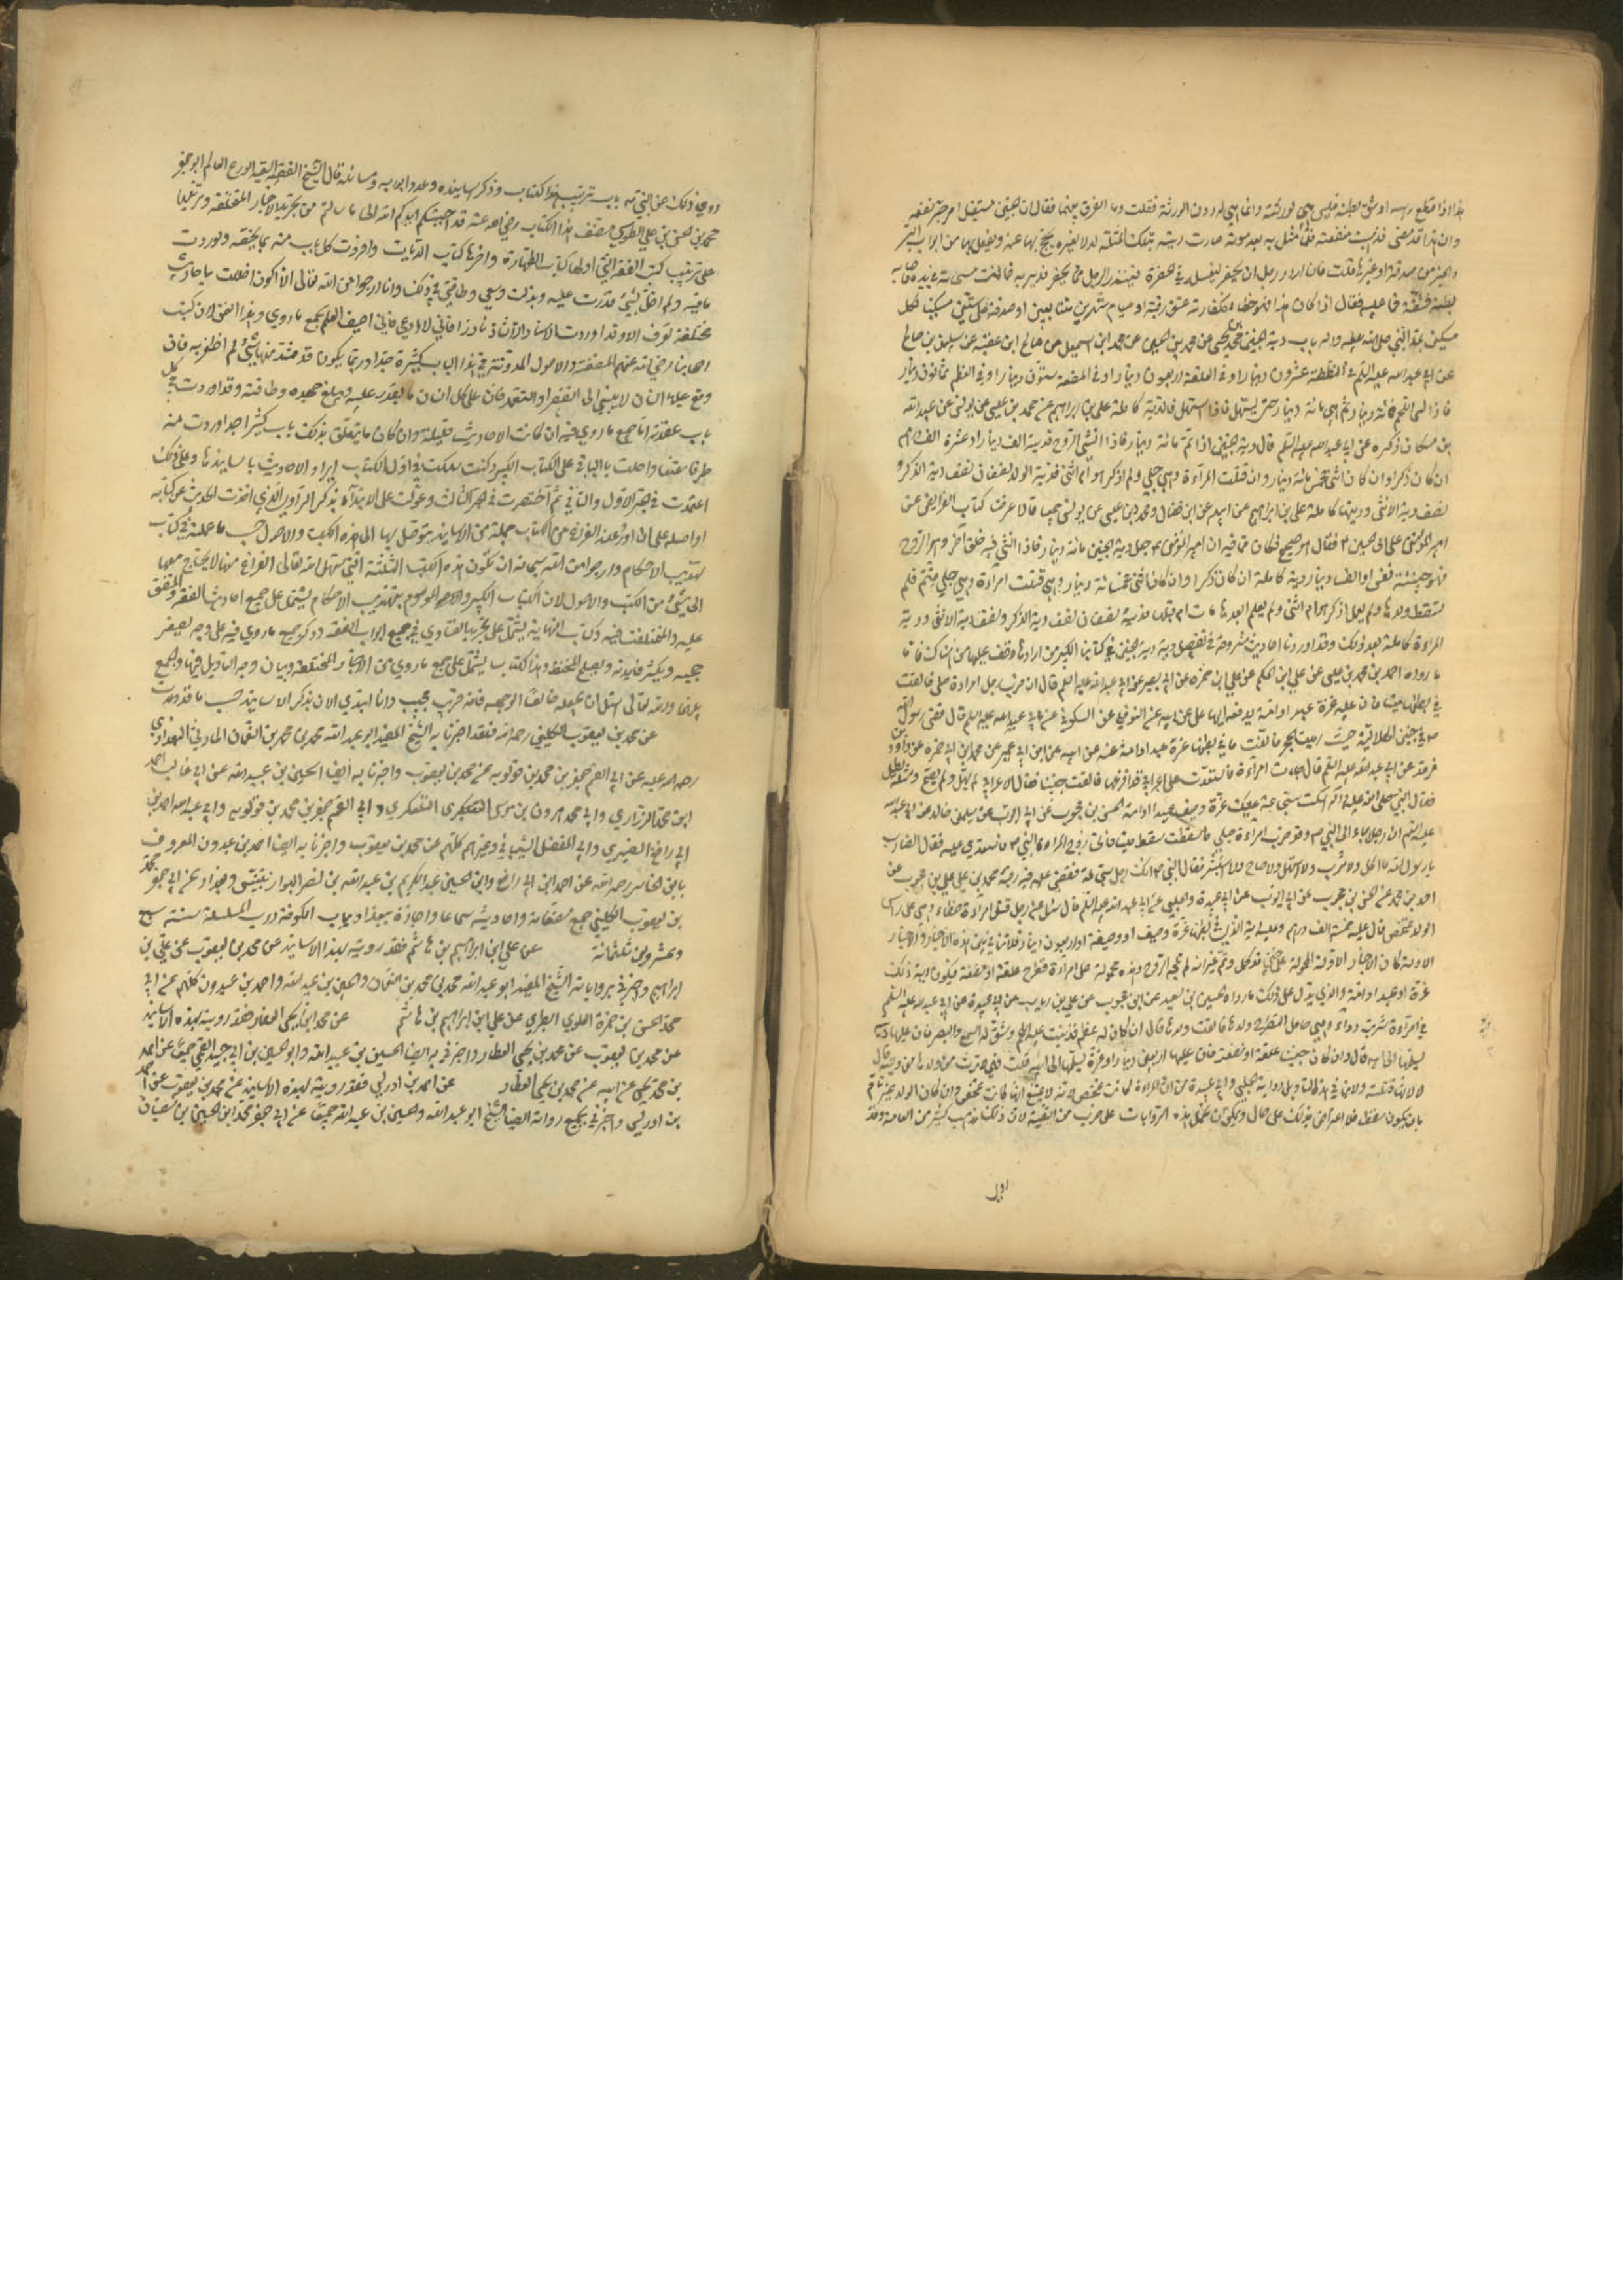 هذا اذا قطع رأسه او شق بطنه فليس هي لورثته وانما هي له دون الورثة فقلت وما الفرق بينهما فقال ان الجنين مستقبل مرجو نفعه
وان هذا قد مضى فذهبت منفعته فلما مثل به بعد موته صارت ديته بتلك المثلة له لا لغيره يحج بها عنه ويفعل بها من ابواب البر
والخير من صدقة او غيرها قلت فان اراد رجل ان يحفر ليغسله في الحفرة فيسدر الرجل مما يحفر فدير به فمالت مسحاته بيده فاصاب
بطنه فشقه فما عليه فقال اذا كان هذا فهو خطأ وكفارته عتق رقبة او صيام شهرين متتابعين او صدقة على ستين مسكينا لكل
مسكين بمد النبي صلى الله عليه وآله باب دية الجنين محمد بن يحيى عن محمد بن الحسين عن محمد ابن اسمعيل عن صالح ابن عقبة عن سليمان بن صالح
عن ابي عبد الله عليه السلام في النطفة عشرون دينارا وفي العلقة اربعون دينارا وفي المضغة ستون دينارا وفي العظم ثمانون دينار
فاذا كسي اللحم فمائة دينار ثم هي مائة دينار حتى يستهل فاذا استهل فالدية كاملة علي بن ابراهيم عن محمد بن عيسى عن يونس عن عبد الله
بن مسكان ذكره عن ابي عبد الله عليه السلام قال دية الجنين اذا تم مائة دينار فاذا انشئ فيه الروح فدية الف دينار او عشرة الف درهم
ان كان ذكرا وان كان انثى فخمس مائة دينار وان قتلت المرأة وهي حبلى ولم اذكر هو ام انثى فدية الولد نصفان نصف دية الذكر و
نصف دية الانثى وديتها كاملة علي بن ابراهيم عن ابيه عن ابن فضال ومحمد بن عيسى عن يونس جميعا قالا عرضنا كتاب الفرائض عن
امير المؤمنين على ابي الحسن ع فقال هو صحيح فكان مما فيه ان امير المؤمنين ع جعل دية الجنين مائة دينار فاذا انشئ فيه خلق آخر وهو الروح
فهو حينئذ نفس والف دينار دية كاملة ان كان ذكرا وان كان انثى خمسمائة دينار وان قتلت امرأة وهي حبلى متم فلم
تسقط ولدها ولم يعلم اذكر هو ام انثى ولم يعلم ابعدها مات ام قبلها فديته نصفان نصف دية الذكر ونصف دية الانثى ودية
المرأة كاملة بعد ذلك وقد اوردنا احاديث مشروحة في تفصيل دية الجنين في كتابنا الكبير من ارادها وقف عليها من هناك فاما
ما رواه احمد بن محمد بن عيسى عن علي ابن الحكم عن علي ابن حمزة عن ابي بصير عن ابي عبد الله عليه السلام قال ان ضرب رجل امرأة حبلى فالقت
ما في بطنها ميتا فان عليه غرة عبد او امة يدفعه اليها علي عن ابيه عن النوفلي عن السكوني عن ابي عبد الله عليه السلام قال قضى رسول الله
ص في جنين الهلالية حيث رميت بالحجر فالقت ما في بطنها غرة عبد او امة عنه عن ابيه عن ابن ابي عمير عن محمد بن ابي حمزة عن داود بن
فرقد عن ابي عبد الله عليه السلام قال جاءت امرأة فاستعدت على اعرابي قد افزعها فالقت جنينا فقال الاعرابي لم يهل ولم يصح ومثله يطل
فقال النبي صلى الله عليه وآله اسكت سجاعة عليك غرة وصيف عبد او امة الحسن بن محبوب عن ابي ايوب عن سليمان خالد عن ابي عبد الله
عليه السلم ان رجلا جاء الى النبي ص وقد ضرب امرأة حبلى فاسقطت سقطا ميتا فاتى زوج المرأة الى النبي ص فاستعدى عليه فقال الضارب
يا رسول الله ما اكل ولا شرب ولا استهل ولا صاح ولا استبشر فقال النبي ص انك رجل سجاعة فقضى عليه فيه رقبة محمد بن علي بن محبوب عن
احمد بن محمد عن الحسن بن محبوب عن ابي ايوب عن ابي عبيدة والحلبي عن ابي عبد الله عليه السلم قال سئل عن رجل قتل امرأة خطأ وهي على رأس
الولد تمخض قال عليه خمسة الف درهم وعليه دية الذي في بطنها غرة وصيف او وصيفة او اربعون دينارا فلا تنافي بين هذه الاخبار والاخبار
الاولة كان الاخبار الاولة المحمولة على جنين قد كمل وتم غير انه لم تلجه الروح وهذه محمولة على امرأة فتطرح علقة او مضغة فيكون دية ذلك
غرة او عبد او امة والذي يدل على ذلك ما رواه الحسين بن سعيد عن ابن محبوب عن علي بن رئاب عن ابي عبيدة عن ابي عبد الله عليه السلم
في امرأة شربت دواء وهي حامل لتطرح ولدها فالقت ولدها قال ان كان له عظم قد نبت عليه اللحم وشق له السمع والبصر فان عليها دية
تسلمها الى ابيه قال وان كان جنينا علقة او مضغة فان عليها اربعين دينارا او غرة تسلمها الى ابيه قلت فهي لا ترث من ولدها من ديته قال
لا لانها قتلته ولا ينافي هذا التأويل رواية الحلبي وابي عبيدة من ان المرأة كانت تمخض لانه لا يمتنع انها كانت تمخض وان كان الولد غير تام
بان يكون سقطا فلا اعتراض بذلك على حال ويمكن ان تحمل هذه الروايات على ضرب من التقية لان ذلك مذهب كثير من العامة وقد
اول
روي ذلك عن النبي ص باب ترتيب هذا الكتاب وذكر اسانيده وعدد ابوابه ومسائله قال الشيخ الفقيه السعيد الورع العالم ابو جعفر
محمد بن الحسن بن علي الطوسي مصنف هذا الكتاب رضي الله عنه قد اجبتكم ايدكم الله الى ما سألتم من تجريد الاخبار المختلفة وترتيبها
على ترتيب كتب الفقه التي اولها كتاب الطهارة وآخرها كتاب الديات وافردت كل باب منه بما يخصه ولوردت
ما فيه ولم اخل بشئ قدرت عليه وبذلت وسعي وطاقتي في ذلك وانا ارجو من الله تعالى الا اكون اخللت باحاديث
مختلفة تعرف الا وقد اوردت الا شاذا نادرا فاني لا ادعي فاني احيف العلم بجميع ما روي في هذا الفن لان كتب
اصحابنا رضي الله عنهم المصنفة والاصول المدونة في هذا الباب كثيرة جدا وربما يكون قد شذ منها شئ لم اظفر به فان
وقع عليه انسان لا ينسبني الى التقصير او التعمد فان على كل انسان ما يقدر عليه ويبلغ جهده وطاقته وقد اوردت في كل
باب عقدته اما جميع ما روي فيه ان كانت الاحاديث قليلة وان كان ما يتعلق بذلك باب كثيرا جدا اوردت منه
طرفا مقنعا واحلت بالباقي على الكتاب الكبير وكنت سلكت في اول الكتاب ايراد الاحاديث باسانيدها وعلى ذلك
اعتمدت في الجزء الاول والثاني ثم اختصرت في الجزء الثالث وعولت على الابتداء بذكر الراوي الذي اخذت الحديث عن كتابه
او اصله على ان اورد عند الفراغ من الكتاب جملة من الاسانيد يتوصل بها الى هذه الكتب والاصول حسب ما عملته في كتاب
تهذيب الاحكام وارجو من الله سبحانه ان تكون هذه الكتب الثلثة التي سهل الله تعالى الفراغ منها لا يحتاج معها
الى شئ من الكتب والاصول لان الكتاب الكبير الموسوم بتهذيب الاحكام يشتمل على جميع احاديث الفقه المتفق
عليه والمختلف فيه وكتاب النهاية يشتمل على تجريد الفتاوى في جميع ابواب الفقه وذكر جميع ما روي فيه على وجه يصغر
حجمه ويكثر فائدته ويصلح للحفظ وهذا الكتاب يشتمل على جميع ما روي من الاخبار المختلفة وبيان وجه التأويل فيها والجمع
بينها والله تعالى اسئل ان يجعله خالصا لوجهه فانه قريب مجيب وانا ابتدي الآن بذكر الاسانيد حسب ما قدمت
عن محمد بن يعقوب الكليني رحمه الله فقد اخبرنا به الشيخ المفيد ابو عبد الله محمد بن محمد بن النعمان الحارثي البغدادي
رحمه الله عليه عن ابي القسم جعفر بن محمد بن قولويه عن محمد بن يعقوب واخبرنا به ايضا الحسين بن عبيد الله عن ابي غالب احمد
ابن محمد الزراري وابي محمد هرون بن موسى التلعكبري وابي القسم جعفر بن محمد بن قولويه وابي عبد الله احمد بن
ابي رافع الصيمري وابي المفضل الشيباني وغيرهم كلهم عن محمد بن يعقوب واخبرنا به ايضا احمد بن عبدون المعروف
بابن الحاشر رحمه الله عن احمد ابن ابي رافع وابي الحسين عبد الكريم بن عبد الله بن نصر البزاز بتنيس وبغداد عن ابي جعفر محمد
بن يعقوب الكليني جميع مصنفاته واحاديثه سماعا واجازة ببغداد بباب الكوفة درب السلسلة سنة سبع
وعشرين وثلثمائة عن علي ابن ابراهيم بن هاشم فقد رويته بهذا الاسانيد عن محمد بن يعقوب عن علي بن
ابراهيم واخبرني برواياته الشيخ المفيد ابو عبد الله محمد بن محمد بن النعمان والحسين بن عبيد الله واحمد بن عبدون كلهم عن ابي
محمد الحسن بن حمزة العلوي الطبري عن علي ابن ابراهيم بن هاشم عن محمد ابن يحيى العطار فقد رويته بهذه الاسانيد
عن محمد بن يعقوب عن محمد بن يحيى العطار واخبرني به ايضا الحسين بن عبيد الله وابو الحسين بن ابي جيد القمي جميعا عن احمد
بن محمد بن يحيى عن ابيه عن محمد بن يحيى العطار عن احمد بن ادريس فقد رويته بهذه الاسانيد عن محمد بن يعقوب عن احمد
بن ادريس واخبرني بجميع رواياته ايضا الشيخ ابو عبد الله والحسين بن عبيد الله جميعا عن ابي جعفر محمد ابن الحسين بن سفيان